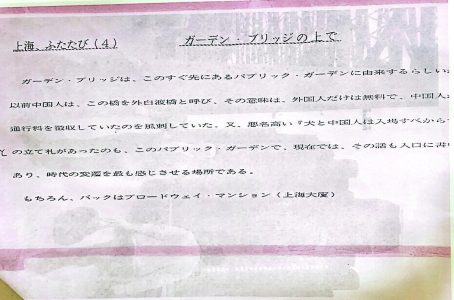 上海、ふたたび(4)　　ガーデン・ブリッジの上で
ガーデン・ブリッジは、このすぐ先にあるパブリック・ガーデンに由来するらしい
以前中国人は、この橋を外白渡橋と呼び、その意味は、外国人だけは無料で、中国人
通行料を徴収していたのを風刺していた。又、悪名高い『犬と中国人は入場すべから
の立て札があったのも、このパブリック・ガーデンで、現在では、その話も入口に書
あり、時代の変遷を最も感じさせる場所である。
もちろん、バックはブロードウェイ・マンション(上海大廈)